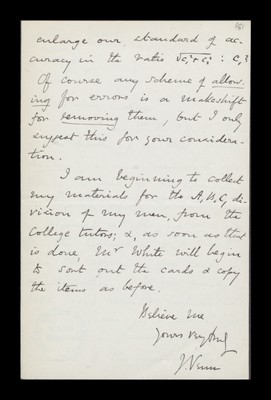 enlarge our standard of ac-
curacy in the ratio √c₁²+c₂² : c₁?
Of course any scheme of allow-
ing for errors is a makeshift
for removing them, but I only
suggest this for your considera-
tion.
I am beginning to collect
my materials for the A, B, C, di-
vision of my men, from the
College tutors; &, as soon as that
is done, Mr White will begin
to sort out the cards & copy
the items as before.
Believe me
Yours very truly
J. Venn